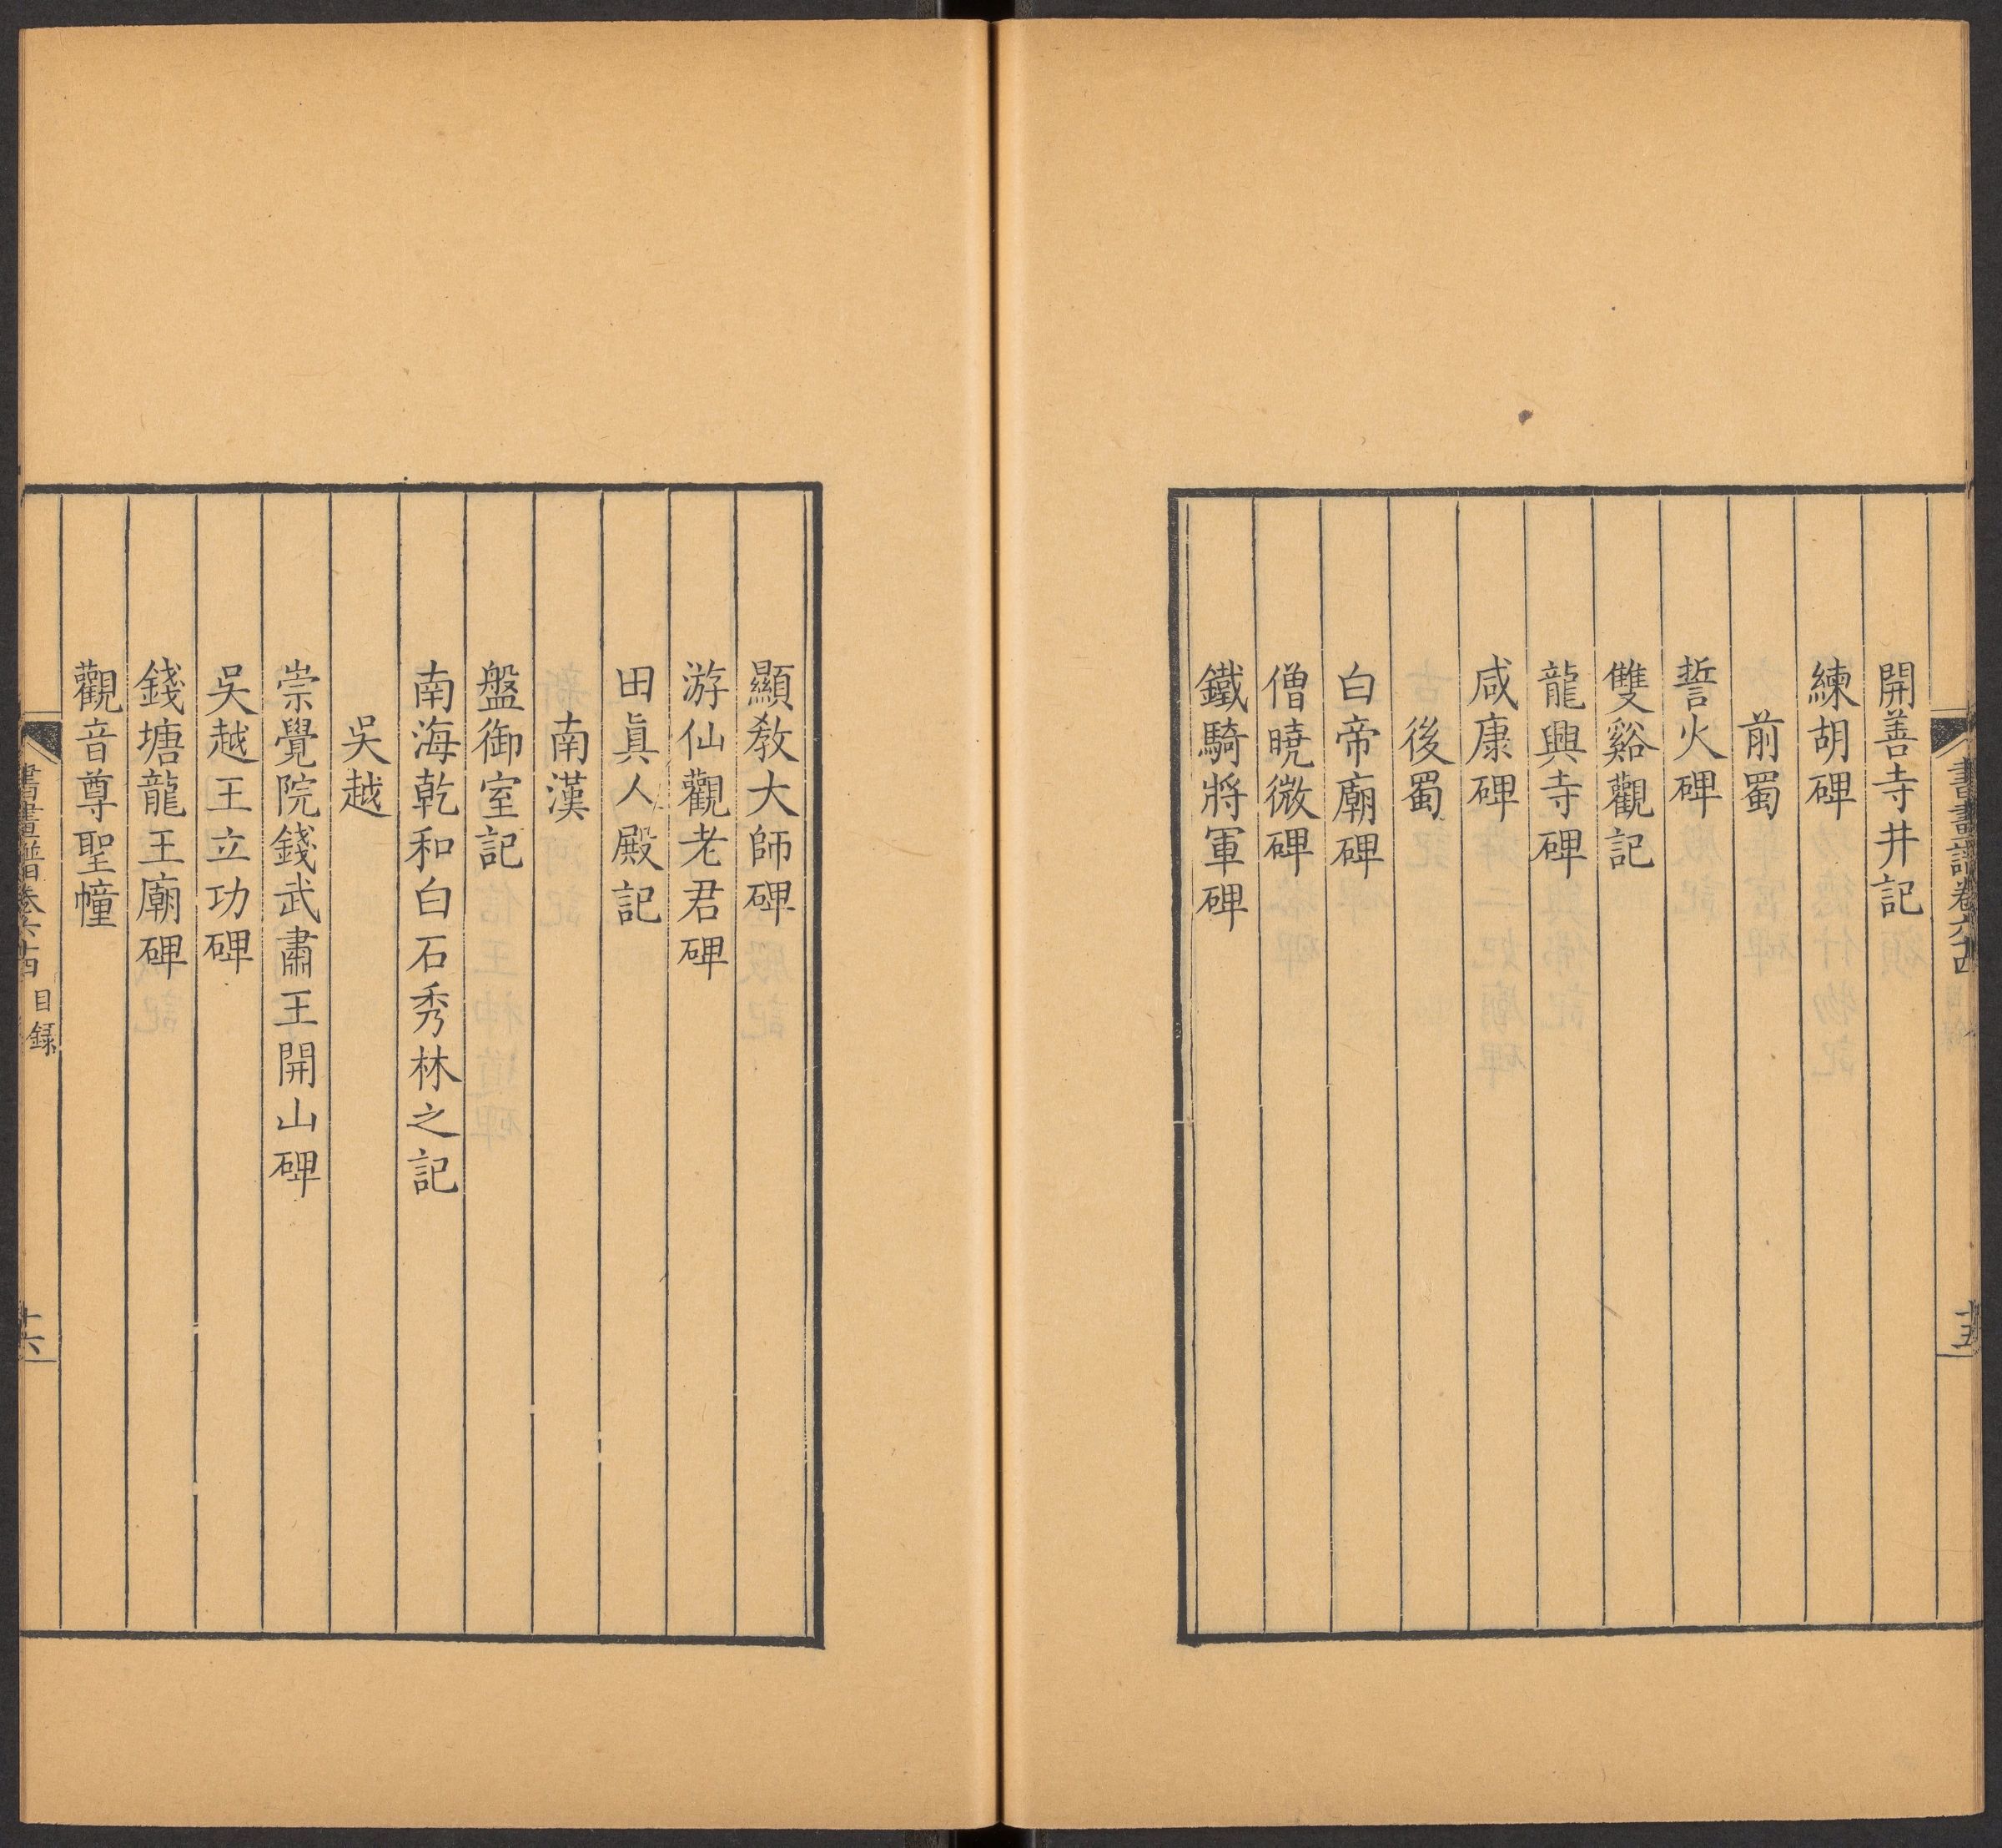 書畫譜卷六十四
十五
開善寺井記
練胡碑
前蜀
誓火碑
雙谿觀記
龍興寺碑
咸康碑
後蜀
白帝廟碑
僧曉微碑
鐵騎將軍碑
顯敎大師碑
游仙觀老君碑
田眞人殿記
南漢
盤御室記
南海乾和白石秀林之記
吳越
崇覺院錢武肅王開山碑
吳越王立功碑
錢塘龍王廟碑
觀音尊聖幢
書畫譜卷六十四 目録
十六